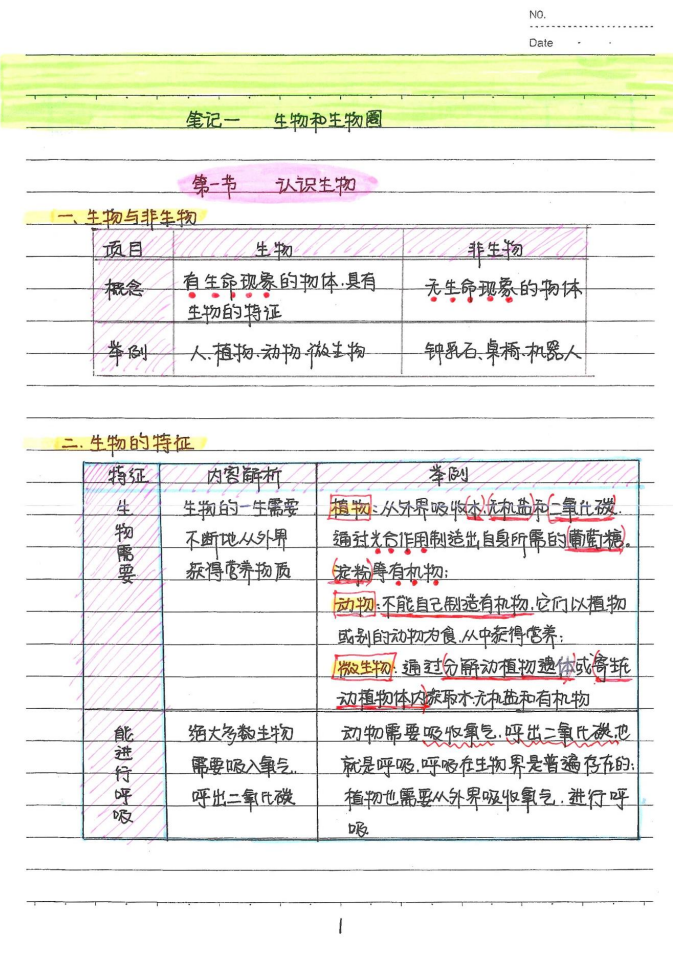 NO.
Date
笔记一 生物和生物圈
第一节 认识生物
一、生物与非生物
项目 生物 非生物
概念 有生命现象的物体、具有生物的特征 无生命现象的物体
举例 人、植物、动物、微生物 钟乳石、桌椅、机器人
二.生物的特征
特征 内容解析 举例
生物需要
生物的一生需要
不断地从外界
获得营养物质
植物:从外界吸收(水)(无机盐)和(二氧化碳).
通过光合作用制造出自身所需的(葡萄糖。
淀粉)等有机物;
动物:不能自己制造有机物,它们以植物
或别的动物为食,从中获得营养;
微生物:通过(分解动植物遗体)或(寄生在
动植物体内)获取水、无机盐和有机物
能进行呼吸
绝大多数生物
需要吸入氧气、
呼出二氧化碳
动物需要吸收氧气、呼出二氧化碳,也
就是呼吸,呼吸在生物界是普遍存在的;
植物也需要从外界吸收氧气,进行呼
吸
1